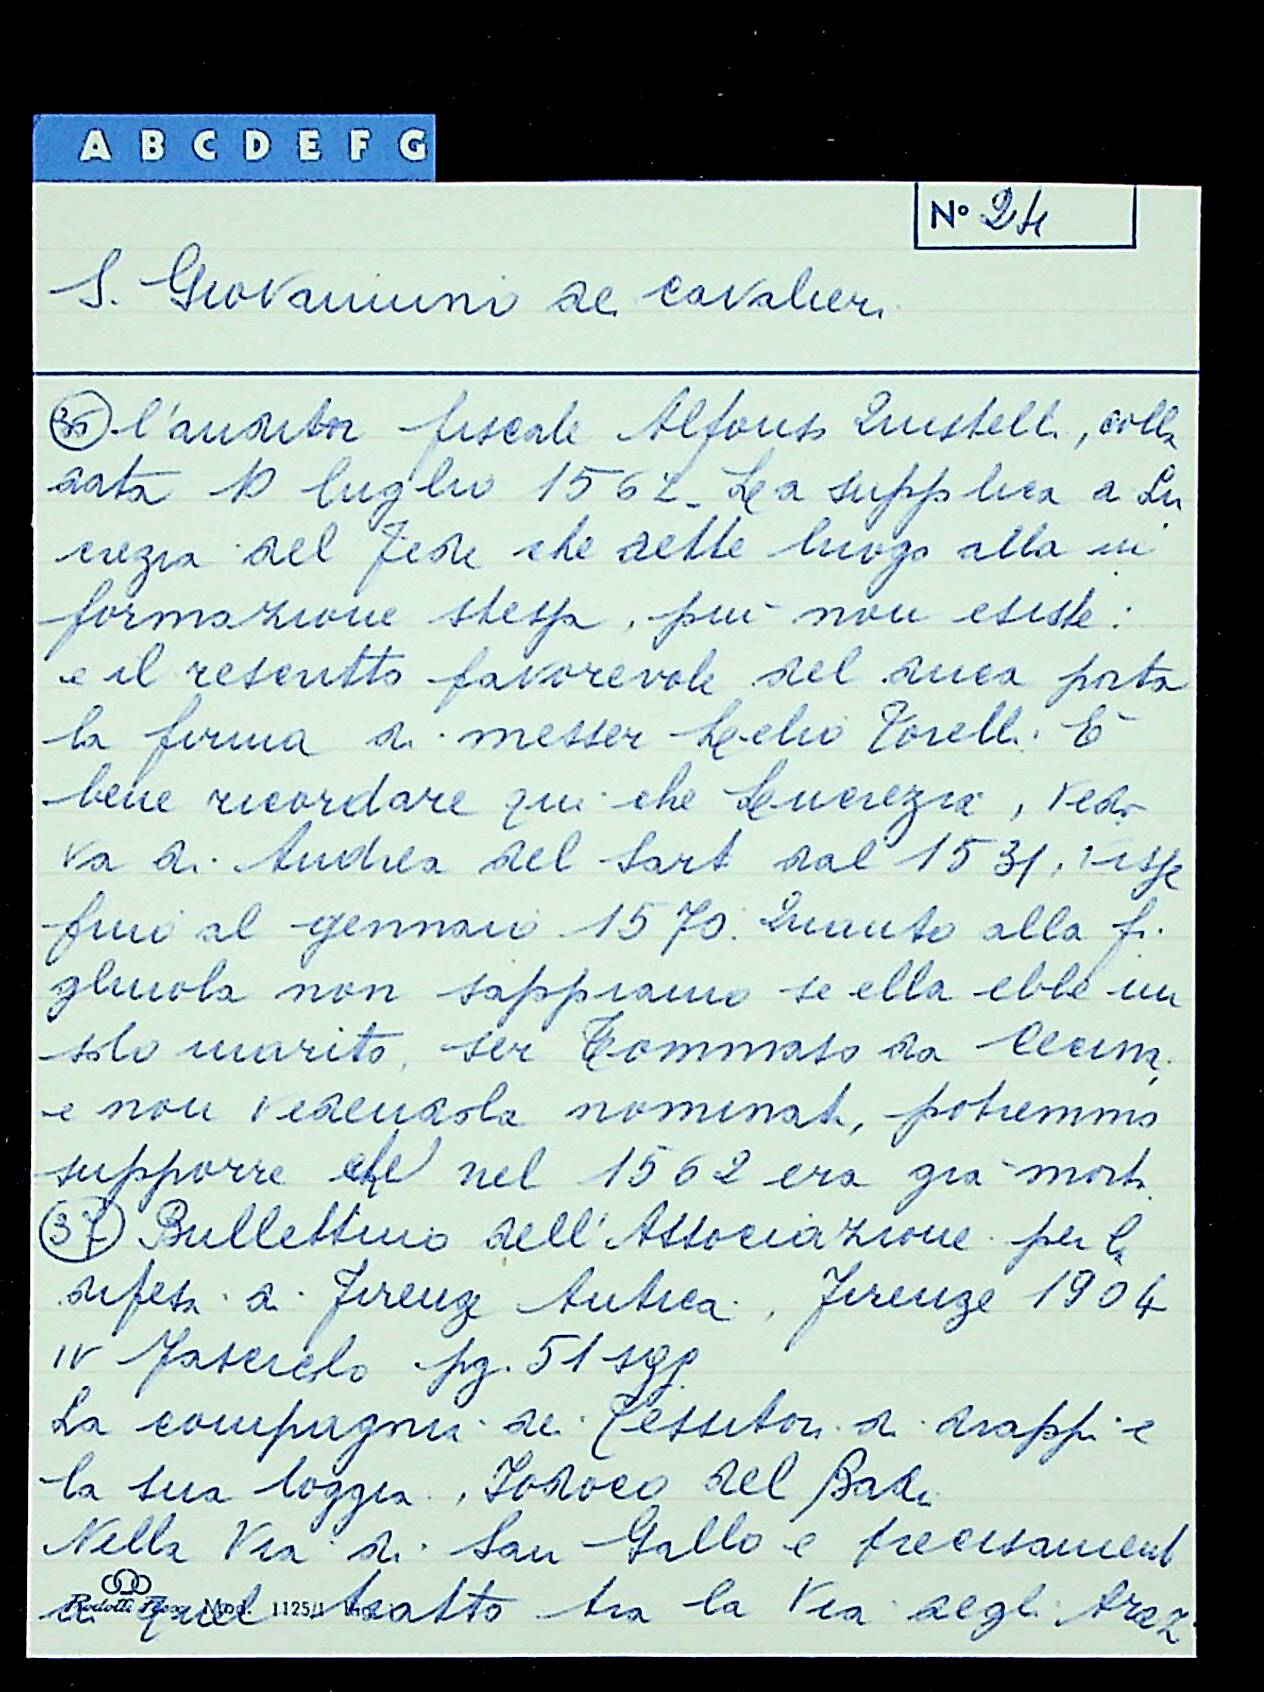 A B C D E F G
N° 24
S. Giovannino dei cavalieri
36 l'auditor fiscale Alfonso Quistelli, colla
data 10 luglio 1562. La supplica a Lu
crezia del Fede che dette luogo alla in
formazione stessa, più non esiste:
e il rescritto favorevole del duca porta
la firma di messer Lelio Torelli. È
bene ricordare qui che Lucrezia, vedo
va di Andrea del Sarto dal 1531, visse
fino al gennaio 1570. Quanto alla fi
gliuola non sappiamo se ella ebbe un
solo marito, ser Tommaso da Cecina,
e non vedendola nominata, potremmo
supporre che nel 1562 era già morta.
37 Bullettino dell'Associazione per la
difesa di Firenze Antica, Firenze 1904
IV Fascicolo pg. 51 sgg.
La compagnia dei Tessitori di drappi e
la sua loggia, Iodoco del Badi
Nella Via di San Gallo e precisament
in quel tratto tra la Via degli Araz
1125/1